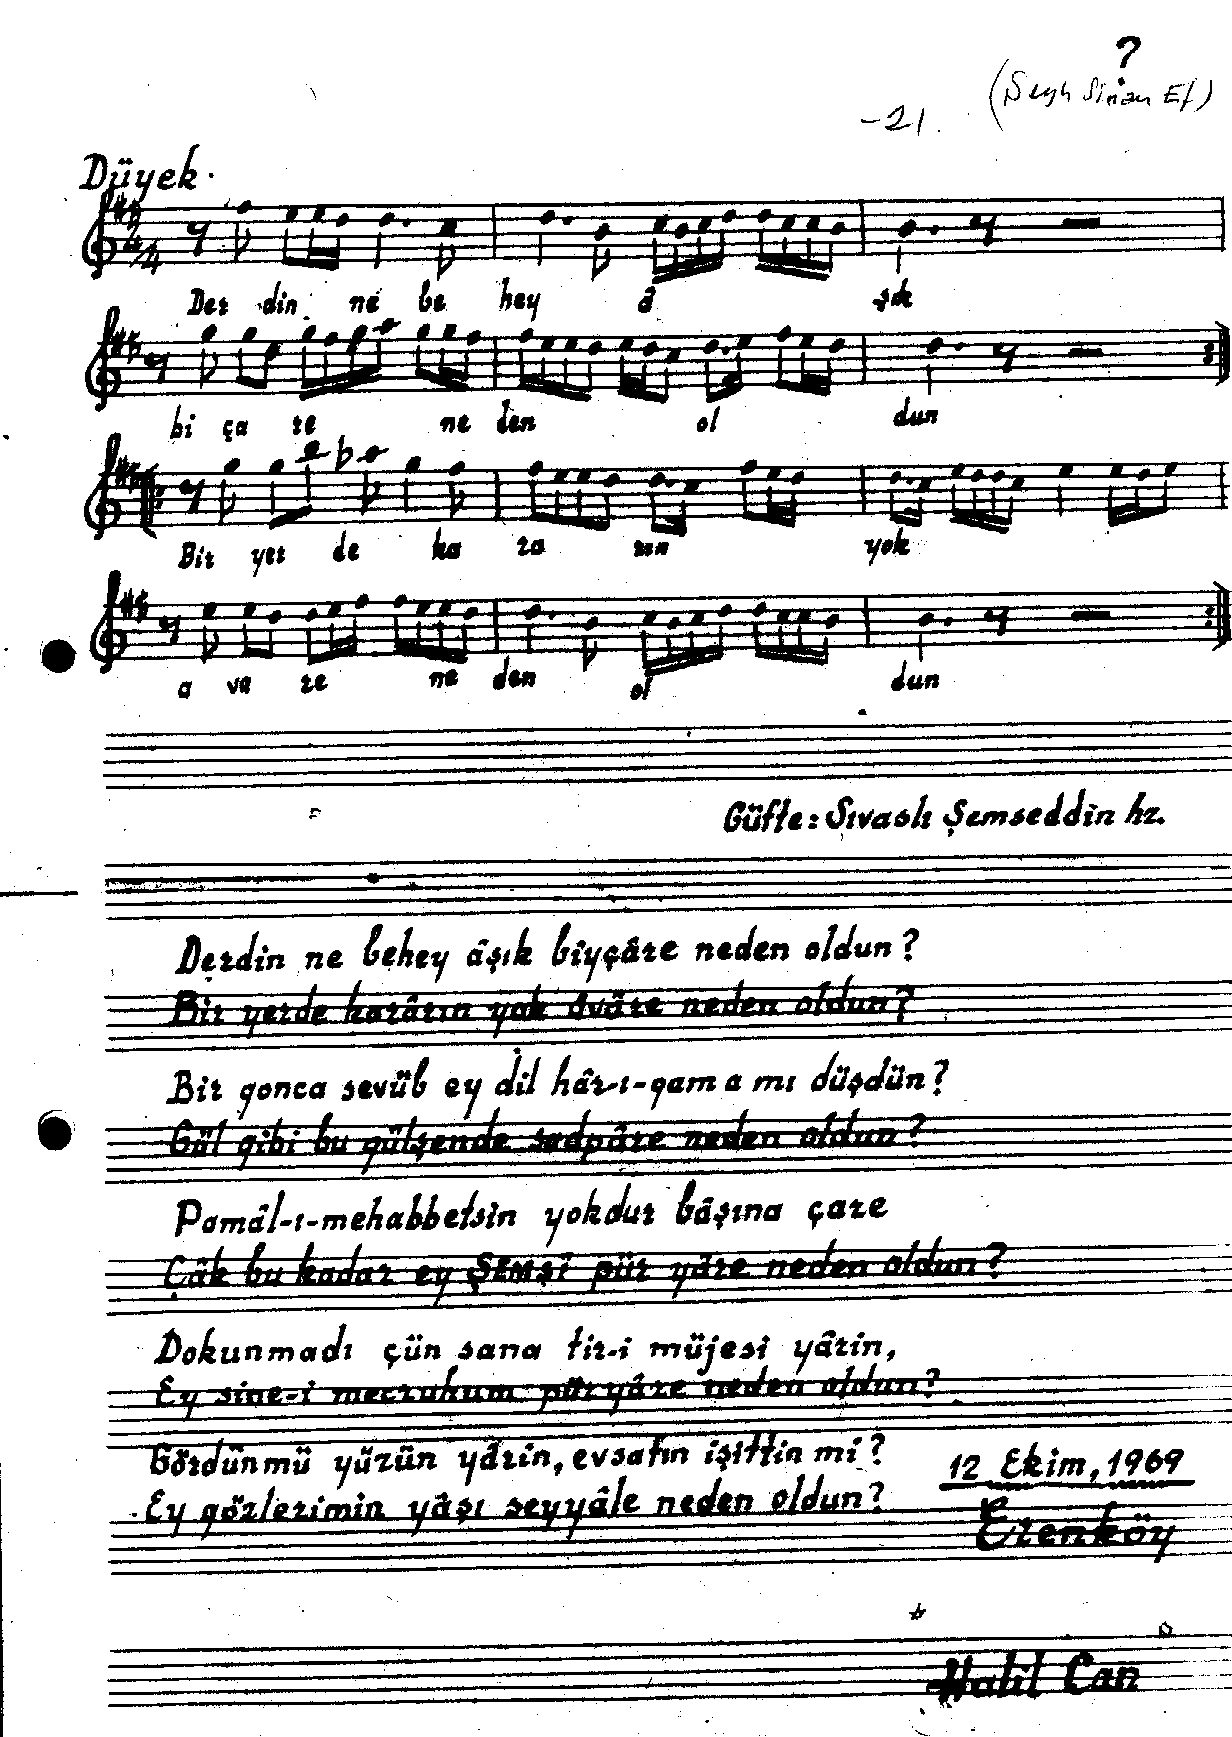 ?
(Şeyh Sinan Ef)
-21.
Düyek.
4/4
Der din ne be hey â şık
bi ça re ne den ol dun
Bir yer de ka ra rın yok
a va re ne den ol dun
Güfte: Sıvaslı Şemseddin hz.
Derdin ne behey âşık bîyçâre neden oldun?
Bir yerde karârın yok âvâre neden oldun?
Bir gonca sevüb ey dil hâr-ı-gama mı düşdün?
Gül gibi bu gülşende sadpâre neden oldun?
Pamâl-ı-mehabbetsin yokdur bâşına çare
Çâk bu kadar ey ŞEMŞİ pür yâre neden oldun?
Dokunmadı çün sana tir-i müjesi yârin,
Ey sine-i mecruhum pür yâre neden oldun?
Gördünmü yüzün yârin, evsafın işittin mi?
Ey gözlerimin yâşı seyyâle neden oldun?
12 Ekim, 1969
Erenköy
Halil Can